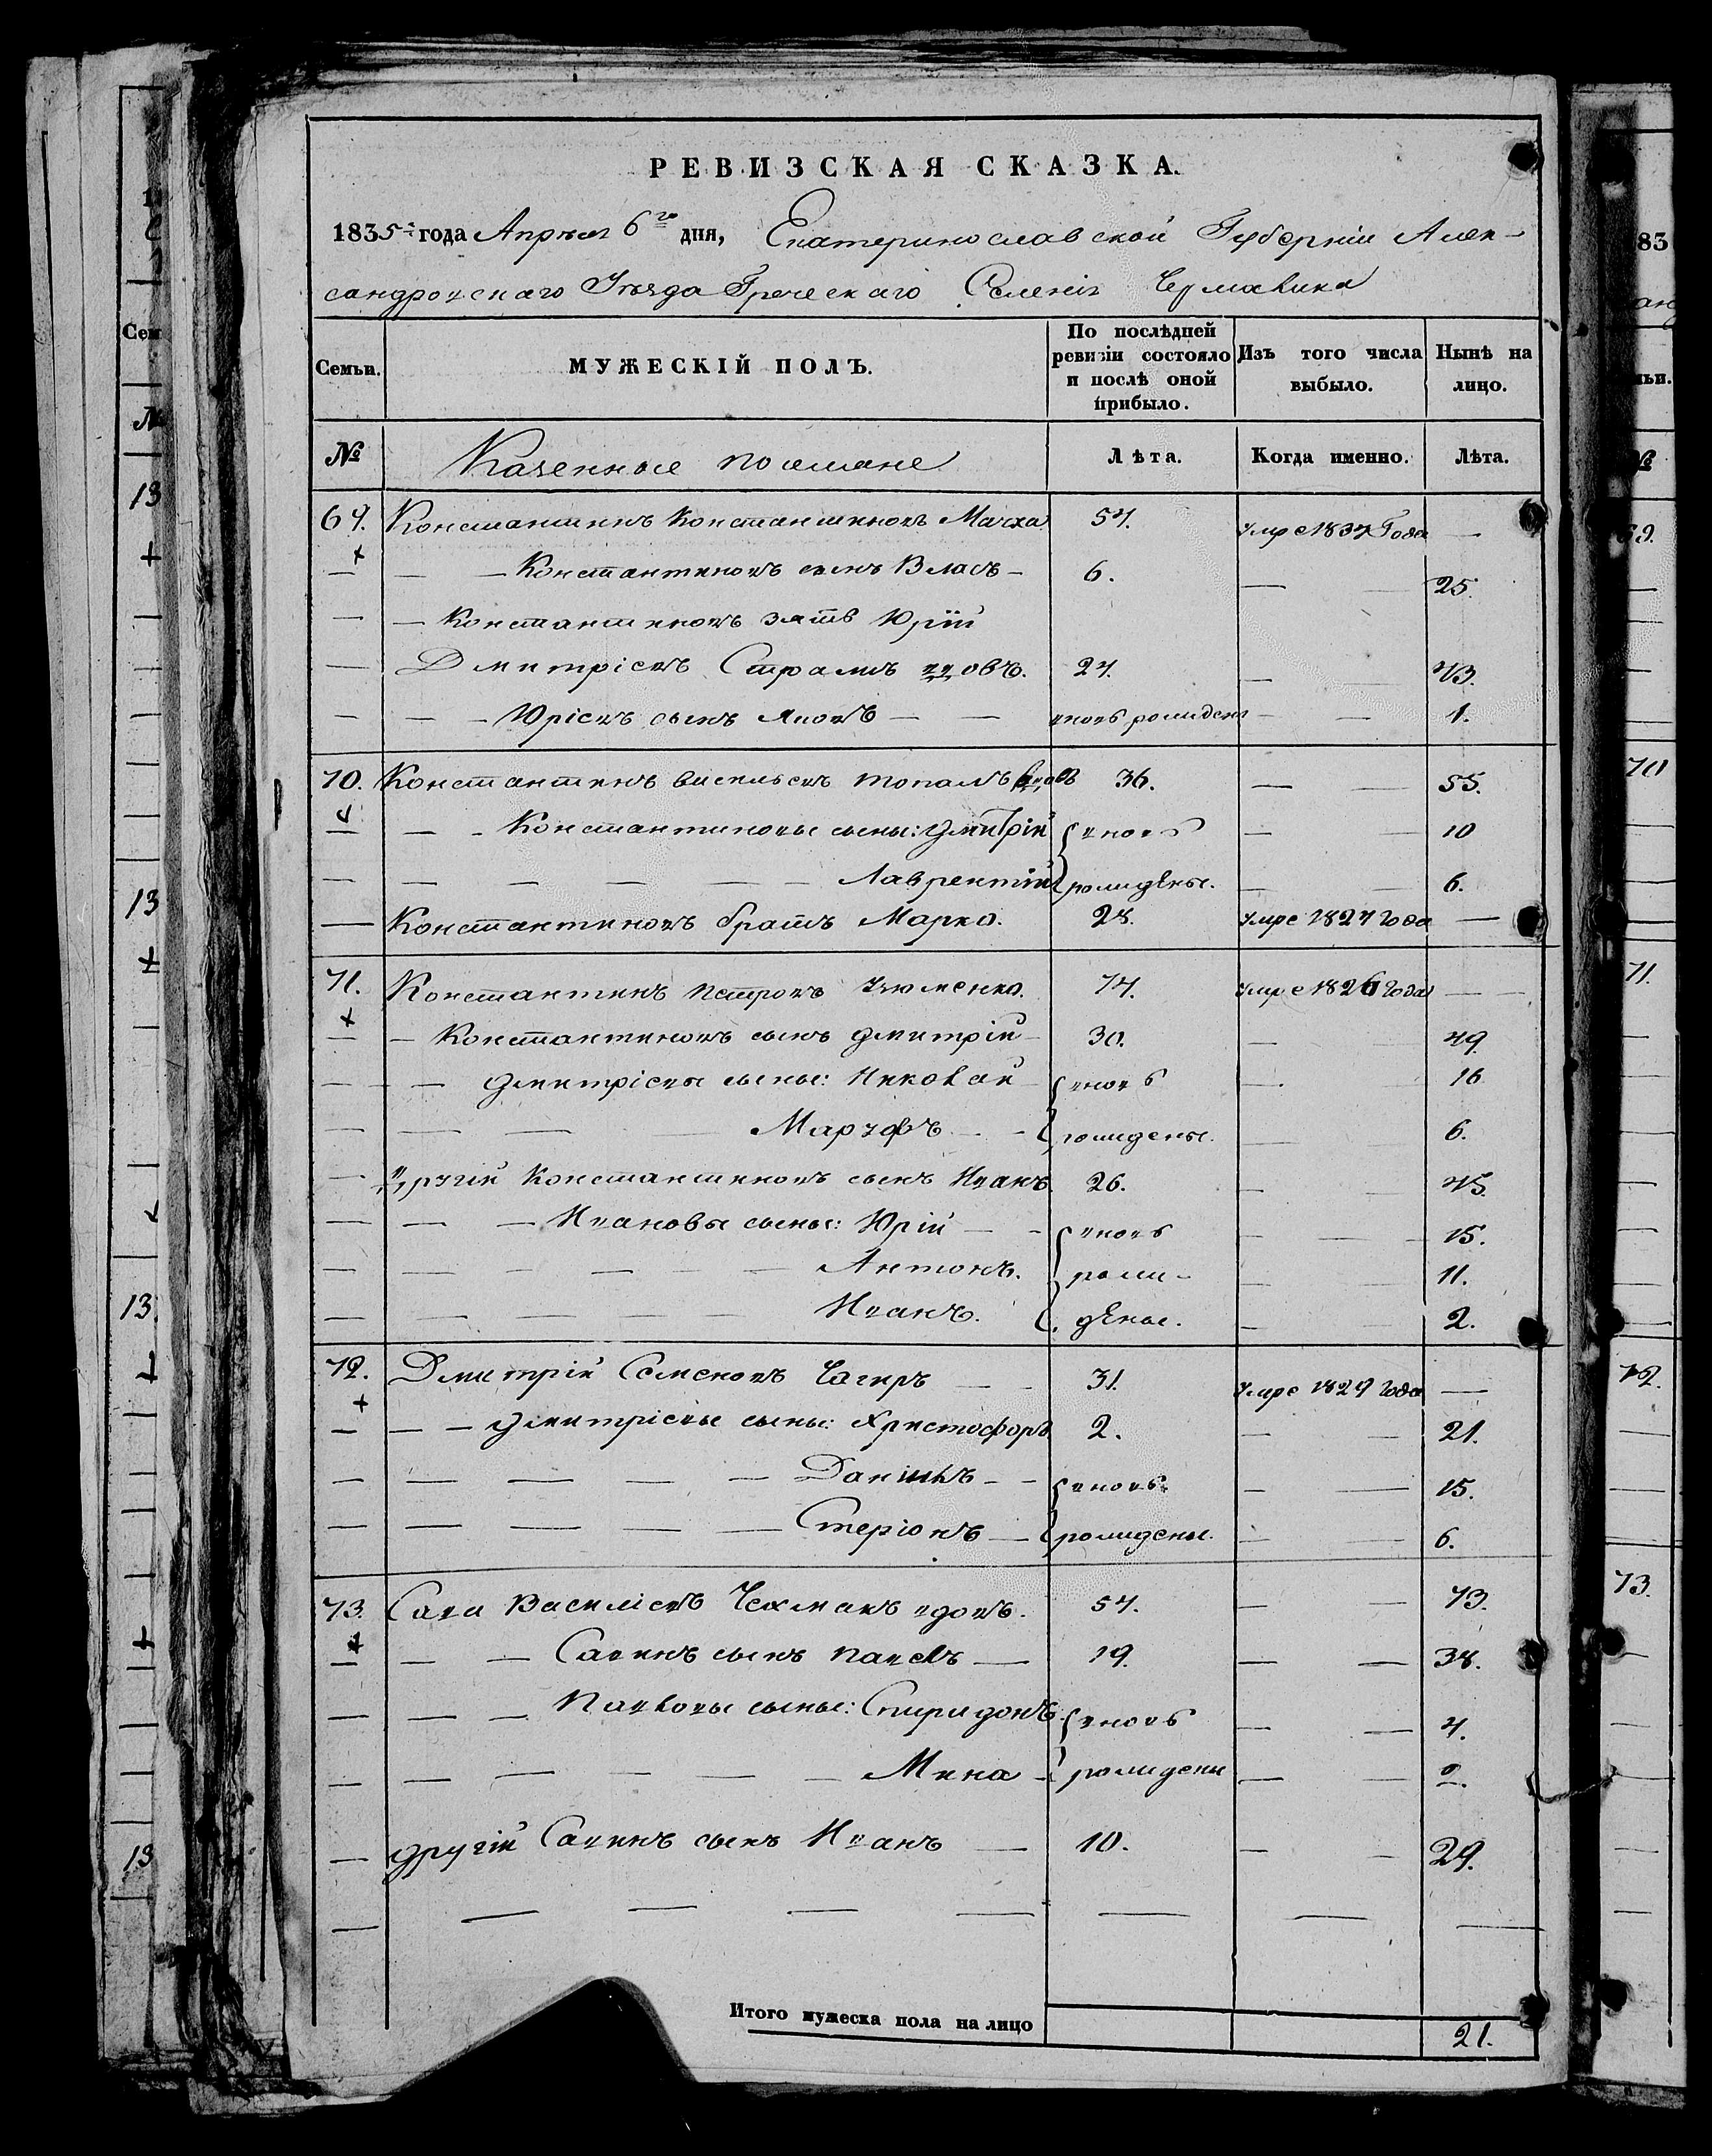 РЕВИЗСКАЯ СКАЗКА.
1835го года Апреля 6го дня, Екатеринославской Губерніи Алек-
сандровскаго Уезда Греческаго Селенія Чермалика
Семьи. МУЖЕСКІЙ ПОЛЪ. По послѣдней ревизіи состояло и послѣ оной прибыло. Изъ того числа выбыло. Нынѣ на лицо.
№ Казенные поселяне Лѣта. Когда именно. Лѣта.
69. Константинъ Константиновъ Мачха 54. умре 1834 Года —
— — — Константиновъ сынъ Власъ — 6. — — 25.
— — Константиновъ зятъ Юрій
— Дмитріевъ Страмъ цовъ. 24. — — 43.
— — — Юріевъ сынъ Яковъ — — вновъ рожденъ — — 1.
70. Константинъ Василъевъ Топалъ 36. — — 55.
— — — Константиновы сыны: Дмитрій вновъ — — 10
— — — — — — Лаврентій рождены. — — 6.
— Константиновъ братъ Марко. 28. умре 1827 Года —
71. Константинъ Петровъ 74. умре 1826 Года — —
— — Константиновъ сынъ Дмитрій — 30. — — 49.
— — — Дмитріевы сыны: Николай вновъ — — 16
— — — — Марчофъ — — рождены. — — 6.
— Другій Константиновъ сынъ Иванъ. 26. — — 45.
— — — Ивановы сыны: Юрій — — вновъ — — — 15.
— — — — — — Антонъ. рож- — — 11.
— — — — — — Иванъ. дены. — — 2.
72. Дмитрій Семеновъ Чагиръ — — 31. умре 1829 Года —
— — — Дмитріевы сыны: Христофоръ 2. — — 21.
— — — — — Данилъ — — вновъ — — 15.
— — — — — Стеріонъ — рождены. — — 6.
73. Сава Василіевъ Чехмакъ цовъ. 54. — — 73.
— — — Савинъ сынъ Павелъ — 19. — — 38.
— — — Павловы сыны: Спиридонъ. вновъ — — 4.
— — — — — — Мина — рождены — — 2.
— другій Савинъ сынъ Иванъ — 10. — — 29.
— — — — — — — —
Итого мужеска пола на лицо 21.